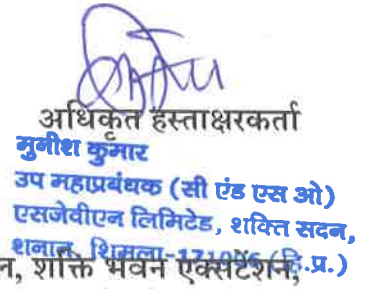 अधिकृत हस्ताक्षरकर्ता
मुनीश कुमार
उप महाप्रबंधक (सी एंड एस ओ)
एसजेवीएन लिमिटेड, शक्ति सदन,
शनान, शिमला-171006 (हि.प्र.)
न, शक्ति भवन एक्सटेंशन,